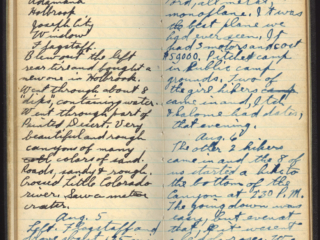 Adamana
Holbrook
Joseph City
Winslow
Flagstaff.
Blew out the left
rear tire. Bought a
new one in Holbrook.
Went through about 8
"dips", containing water.
Went through part of
Painted Desert. Very
beautiful and rough
canyons of many
colors of sand.
Roads, sandy & rough.
Crossed Little Colorado
river. Saw meteor
crater.
Aug. 5
Left Flagstaff and
Ford, all metal,
monoplane. It was
the best plane we
had ever seen. It
had 3 motors and cost
$54000. Pitched camp
in public camp
grounds. Two of
the girl hikers
came in and, I, Ted
& Thelorne had dates,
that evening.
Aug. 6
The other 2 hikers
came in and the 8 of
us started a hike to
the bottom of the
Canyon at 2:30 P.M.
The going down was
easy, but even at
that, it wasn't